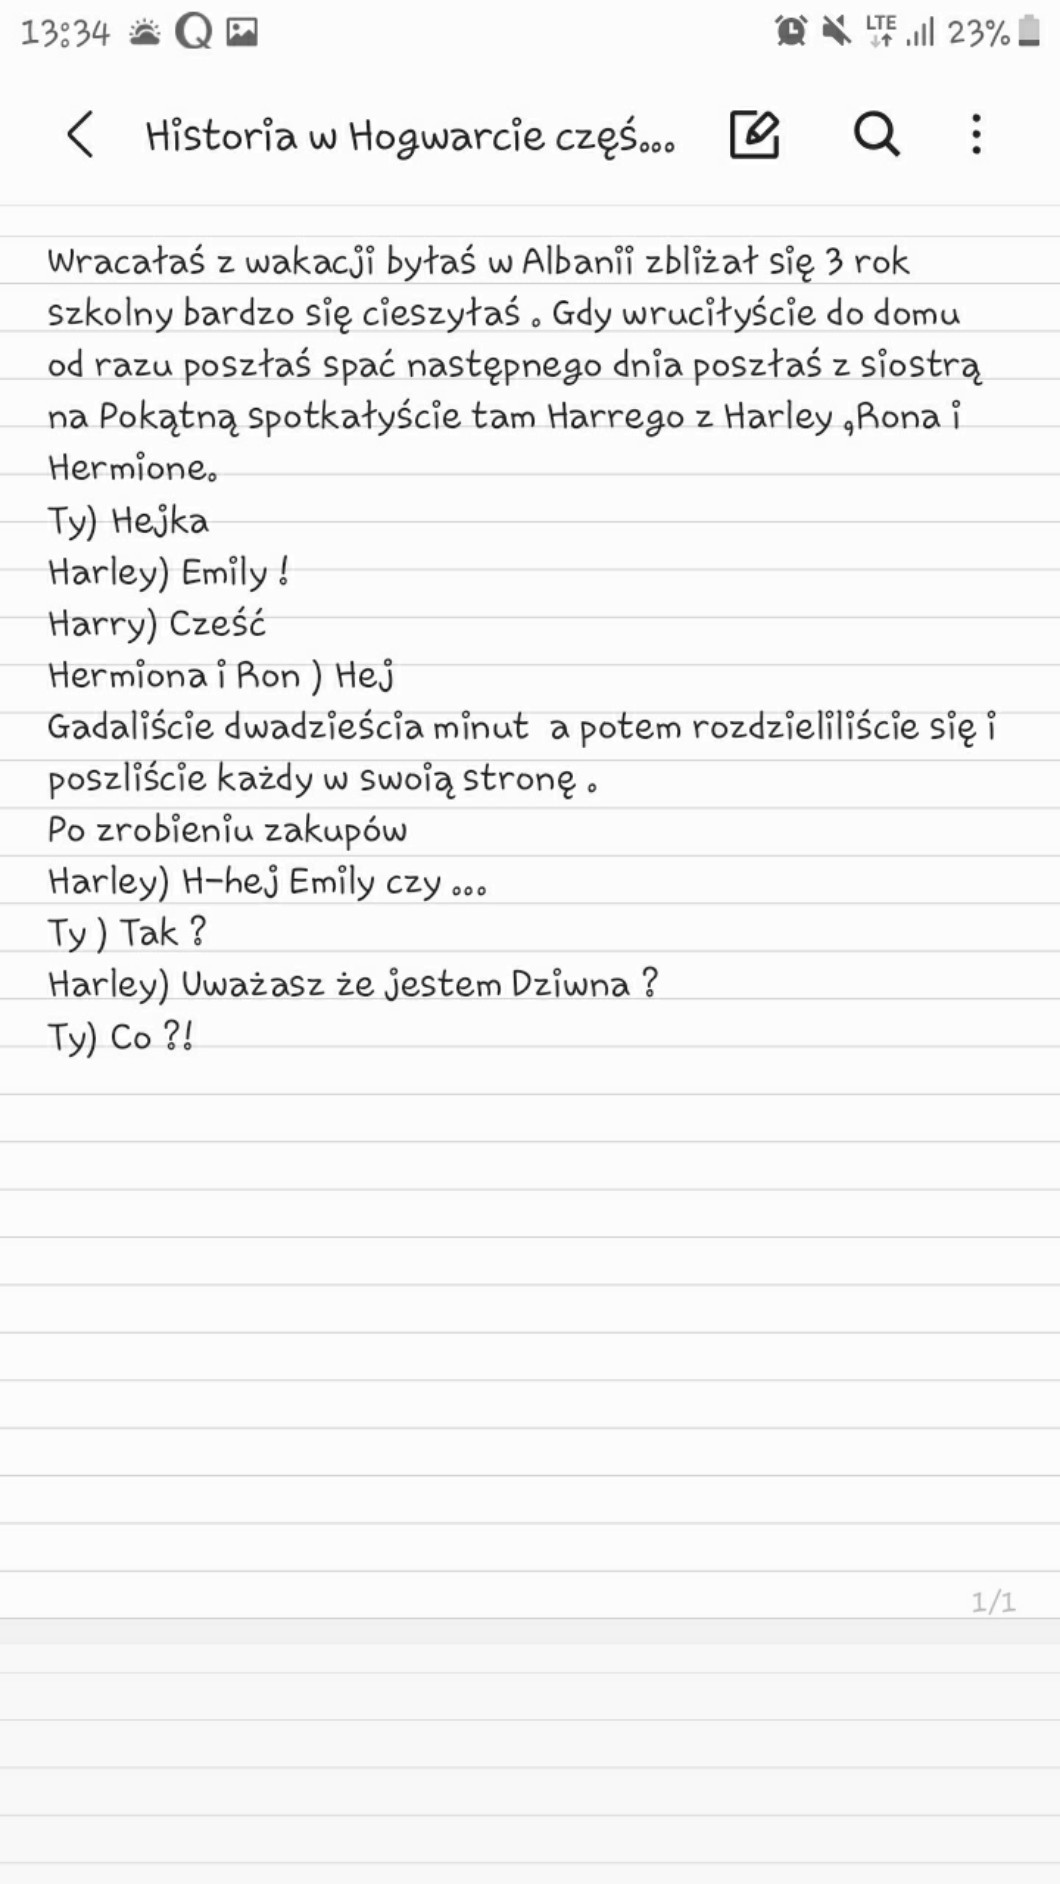 13:34 Q LTE 23%
Historia w Hogwarcie częś...
Wracałaś z wakacji byłaś w Albanii zbliżał się 3 rok
szkolny bardzo się cieszyłaś . Gdy wruciłyście do domu
od razu poszłaś spać następnego dnia poszłaś z siostrą
na Pokątną spotkałyście tam Harrego z Harley ,Rona i
Hermione.
Ty) Hejka
Harley) Emily !
Harry) Cześć
Hermiona i Ron ) Hej
Gadaliście dwadzieścia minut  a potem rozdzieliliście się i
poszliście każdy w swoią stronę .
Po zrobieniu zakupów
Harley) H-hej Emily czy ...
Ty ) Tak ?
Harley) Uważasz że jestem Dziwna ?
Ty) Co ?!
1/1